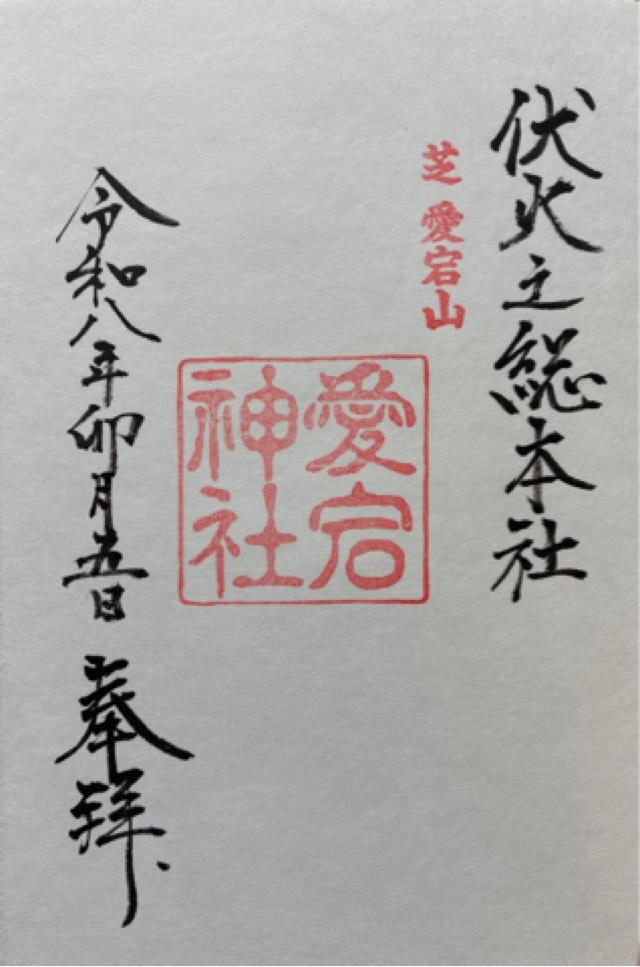 伏火之総本社
芝 愛宕山
愛宕
神社
令和八年卯月五日 奉拝